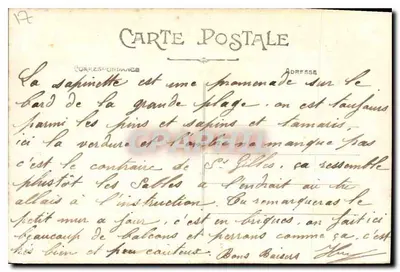 17
CARTE POSTALE
CORRESPONDANCE
ADRESSE
La sapinette est une promenade sur le
bord de la grande plage, on est toujours
parmi les pins et sapins et tamaris,
ici la verdure et l'ombre ne manque pas
c'est le contraire de St Gilles, ça ressemble
plustôt les Sables à l'endroit où tu
allais à l'instruction. Tu remarqueras le
petit mur à jour, c'est en briques, on fait ici
beaucoup de balcons et perrons comme ça, c'est
très bien et peu couteux. Bons Baisers